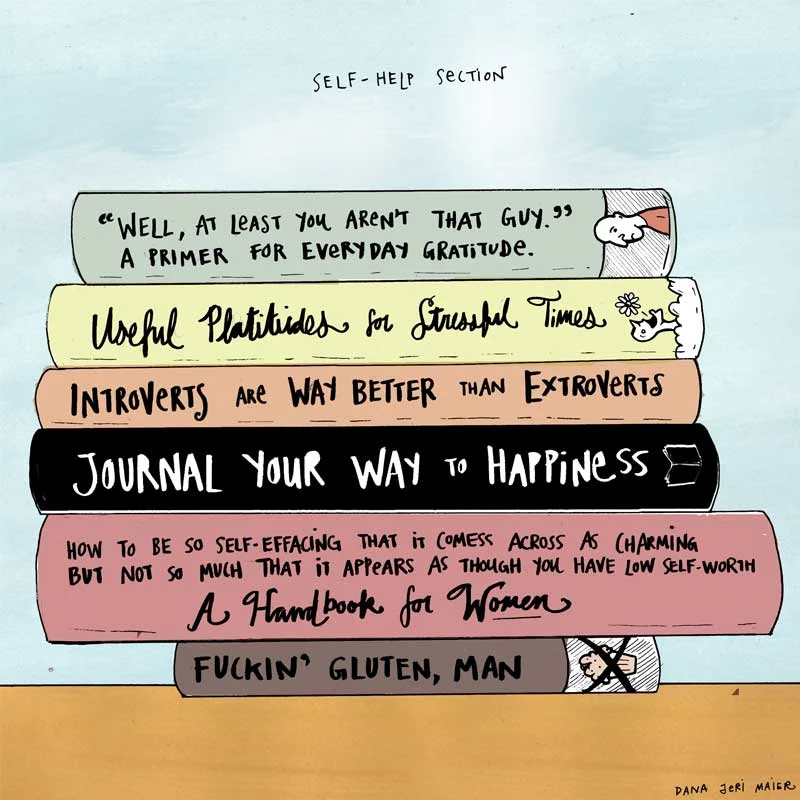 SELF-HELP SECTION
“WELL, AT LEAST YOU AREN'T THAT GUY.”
A PRIMER FOR EVERYDAY GRATITUDE.
Useful Platitudes for Stressful Times
INTROVERTS ARE WAY BETTER THAN EXTROVERTS
JOURNAL YOUR WAY TO HAPPINESS
HOW TO BE SO SELF-EFFACING THAT IT COMESS ACROSS AS CHARMING
BUT NOT SO MUCH THAT IT APPEARS AS THOUGH YOU HAVE LOW SELF-WORTH
A Handbook for Women
FUCKIN' GLUTEN, MAN
DANA JERI MAIER